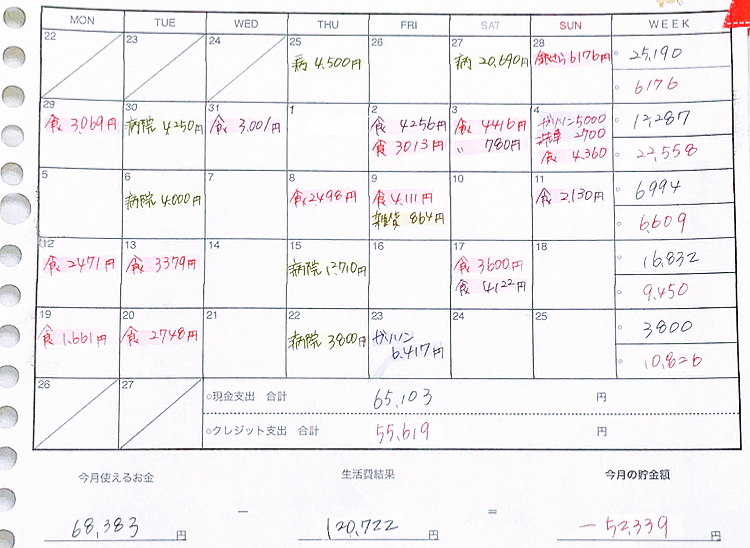 MON TUE WED THU FRI SAT SUN WEEK
22 23 24 25 26 27 28
病 4,500円 病 20,690円 6176円 25,190
6176
29 30 31 1 2 3 4
食 3,069円 病院 4250円 食 3,001円 食 4256円 食 4416円 ガソリン5000 12,287
食 3013円 〃 780円 洗車 2700 22,558
食 4,360
5 6 7 8 9 10 11
病院 4,000円 食2498円 食 4,111円 食 2,130円 6994
雑貨 864円 6,609
12 13 14 15 16 17 18
食 2471円 食 3379円 病院 12,710円 食 3600円 16,832
食 4,122円 9,450
19 20 21 22 23 24 25
食 1,661円 食 2748円 病院 3800円 ガソリン 3800
6,417円 10,826
26 27
○現金支出 合計 65,103 円
○クレジット支出 合計 55,619 円
今月使えるお金 生活費結果 今月の貯金額
68,383円 − 120,722円 = −52,339円